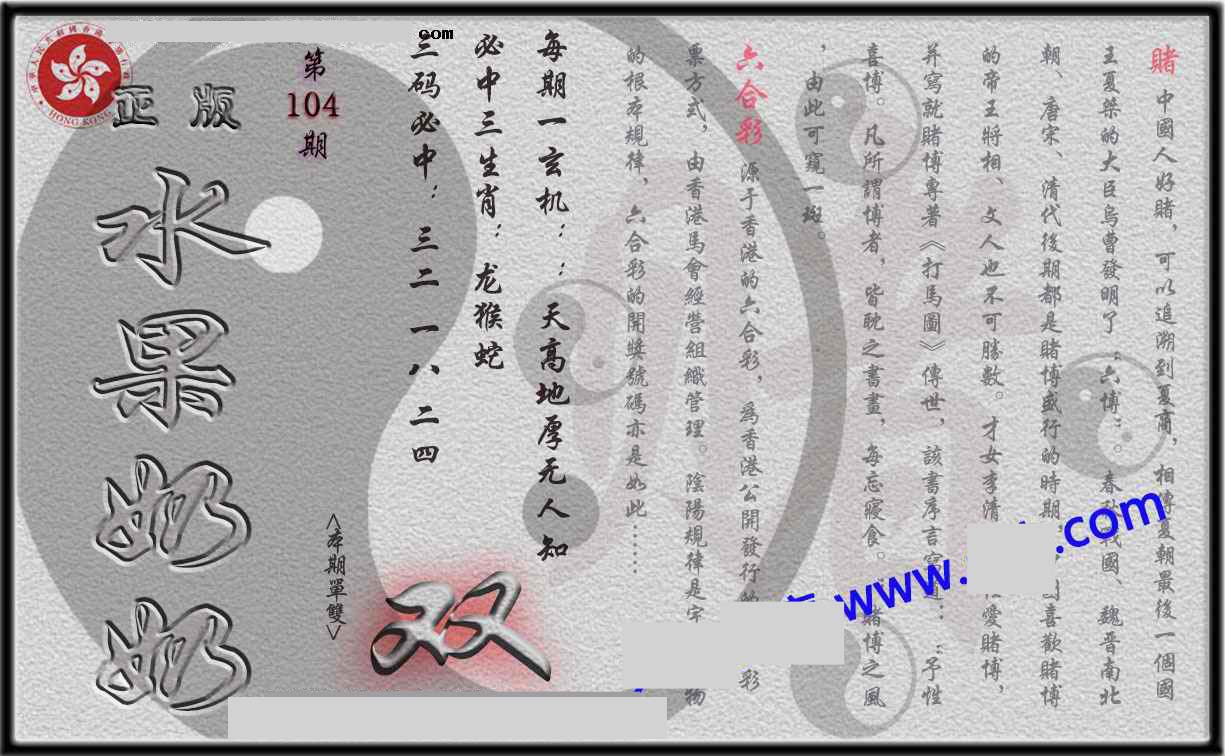 賭 中國人好賭，可以追溯到夏商，相傳夏朝最後一個國
王夏桀的大臣烏曹發明了：六博：。春秋戰國、魏晉南北
朝、唐宋、清代後期都是賭博盛行的時期，喜歡賭博
的帝王將相、文人也不可勝數。才女李清愛賭博，
并寫就賭博專著《打馬圖》傳世，該書序言寫道：：予性
喜博。凡所謂博者，皆耽之晝，每忘寢食。：賭博之風
，由此可窺一斑。
六合彩 源于香港的六合彩，為香港公開發行的彩
票方式，由香港馬會經營組織管理。陰陽規律是宇物
的根本規律，六合彩的開獎號碼亦是如此……
每期一玄机：：天高地厚无人知
必中三生肖：龙猴蛇
三码必中：三二 一八 二四
com
第
104
期
正版
水果奶奶
<本期單雙>
双
www.
.com
HONG KONG